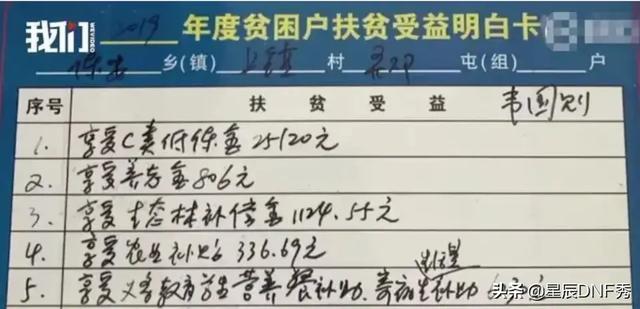 我们 WEVIDEO
2019年度贫困户扶贫受益明白卡
乡(镇) 村 屯(组) 户
序号 扶贫受益 韦国则
1. 享受C类低保金25120元
2. 享受养老金806元
3. 享受生态林补偿金1124.55元
4. 享受农业补贴336.69元
5. 享受义务教育学生营养餐补助、寄宿生补助
头条@星辰DNF秀